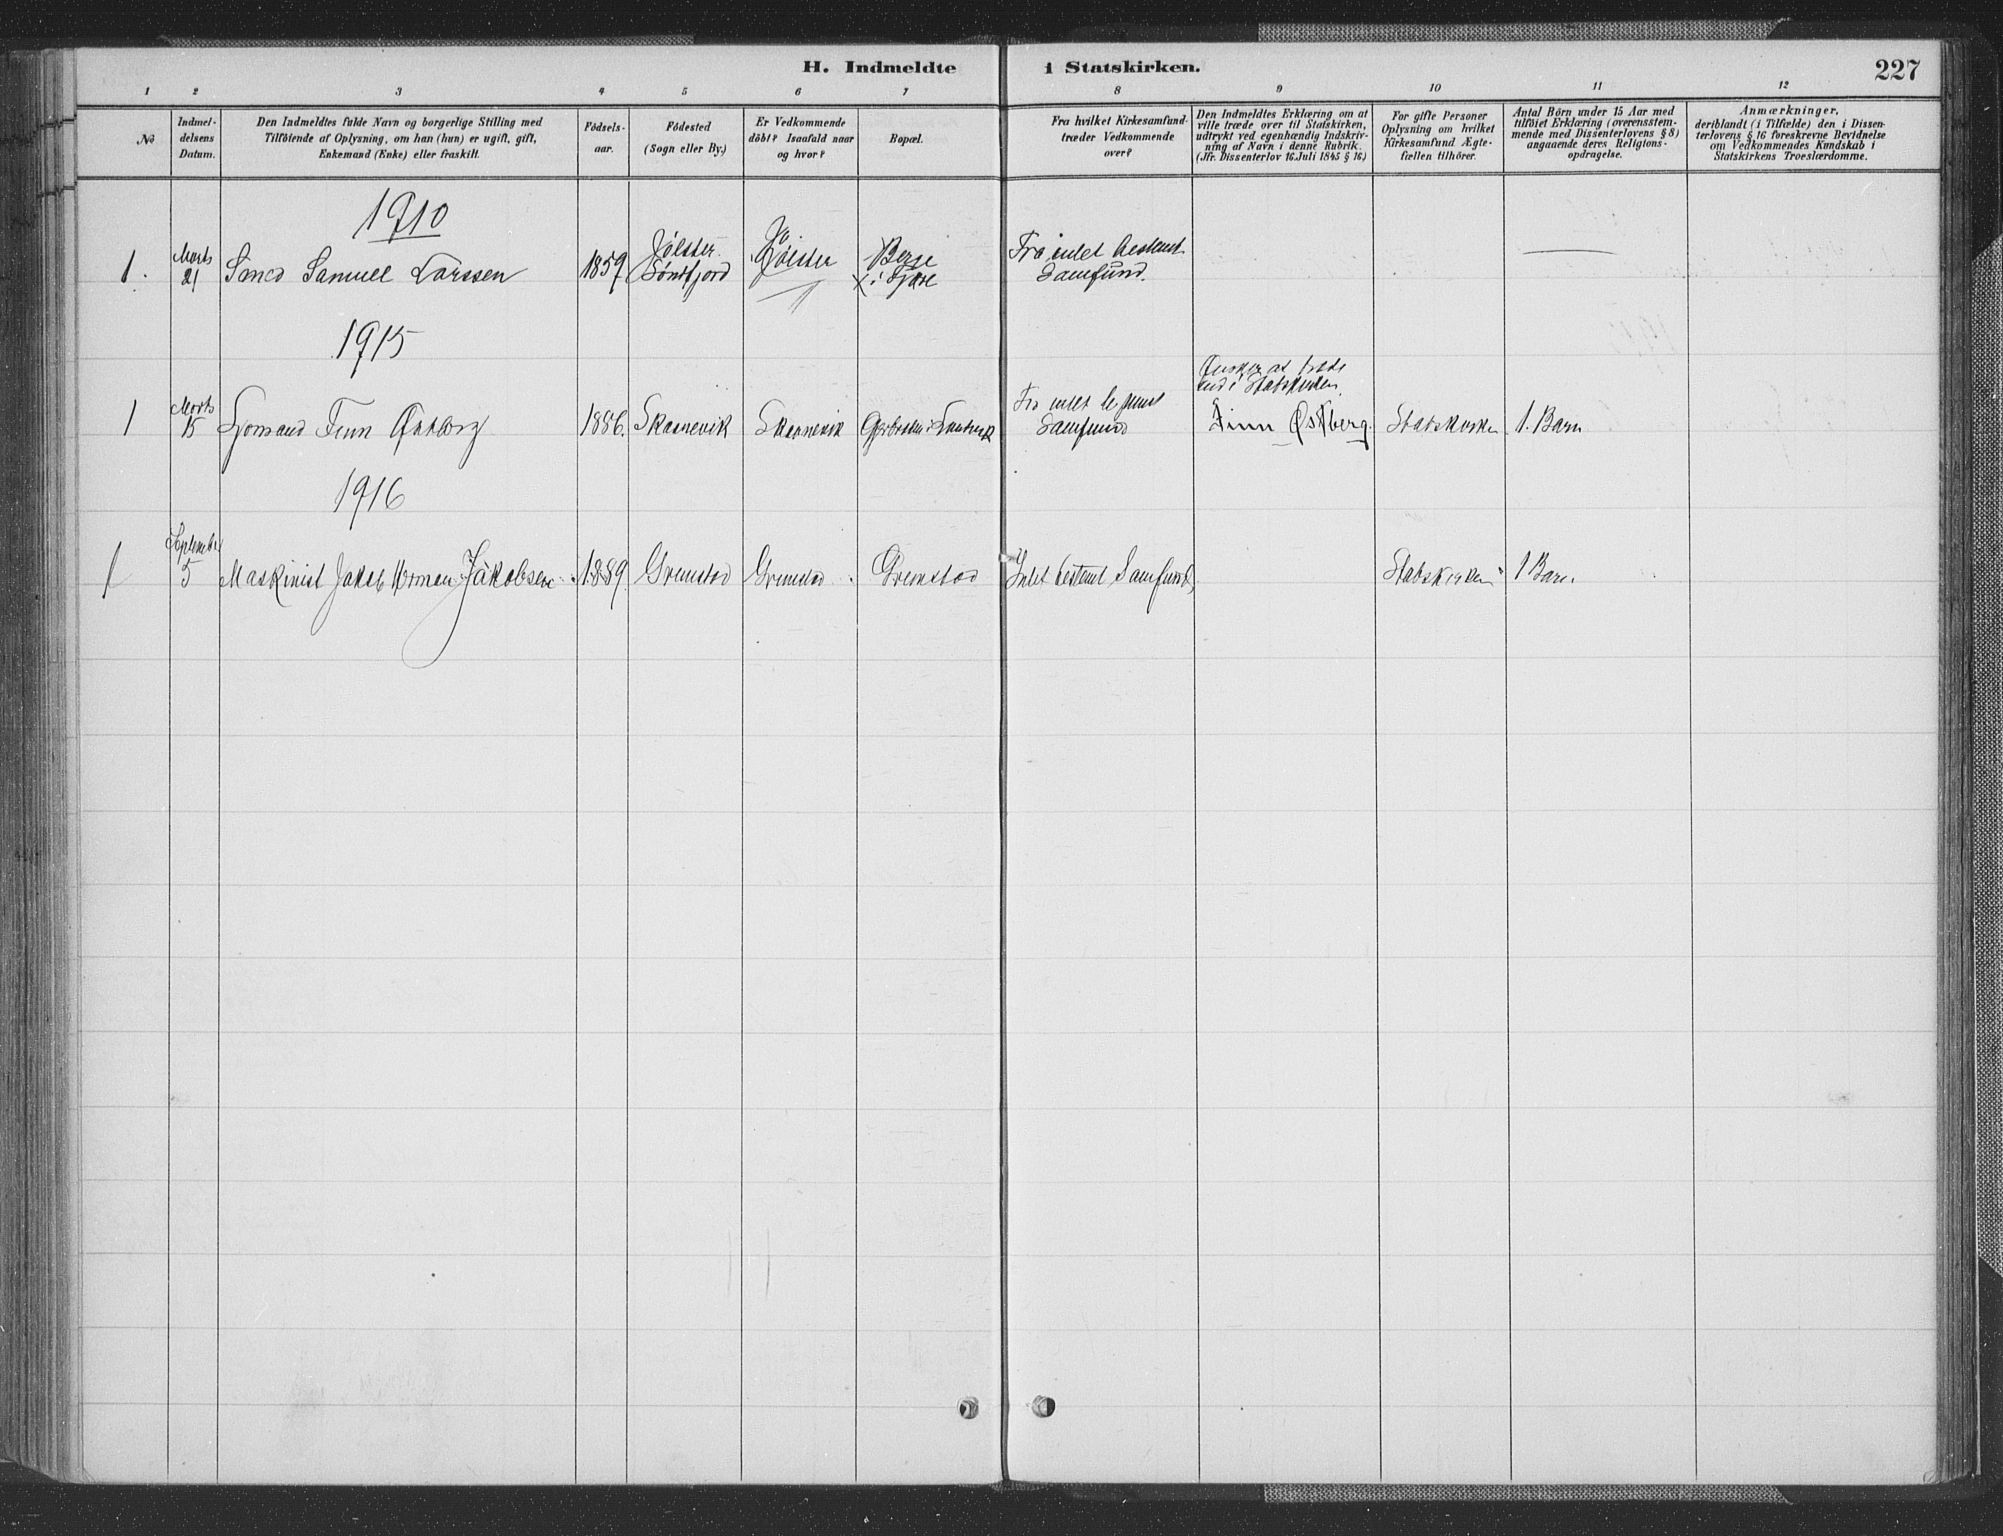 H. Indmeldte i Statskirken.
227
1 2 3 4 5 6 7 8 9 10 11 12
No
Indmel-
delsens
Datum.
Den Indmeldtes fulde Navn og borgerlige Stilling med
Tilföiende af Oplysning, om han (hun) er ugift, gift,
Enkemand (Enke) eller fraskilt.
Födsels-
aar.
Födested
(Sogn eller By.)
Er Vedkommende
döbt? Isaafald naar
og hvor?
Bopæl.
Fra hvilket Kirkesamfund
træder Vedkommende
over?
Den Indmeldtes Erklæring om at
ville træde over til Statskirken,
udtrykt ved egenhændig Indskriv-
ning af Navn i denne Rubrik.
(Jfr. Dissenterlov 16 Juli 1845 § 16)
For gifte Personer
Oplysning om hvilket
Kirkesamfund Ægte-
fællen tilhörer.
Antal Börn under 15 Aar med
tilföiet Erklæring (overensstem-
mende med Dissenterlovens § 8)
angaaende deres Religions-
opdragelse.
Anmærkninger,
deriblandt (i Tilfælde) den i Dissen-
terlovens § 16 foreskrevne Bevidnelse
om Vedkommendes Kundskab i
Statskirkens Troeslærdomme.
1910
1.
Marts
21
Smed Samuel Larssen
1859
Jölster
Söndfjord
Jölster
Berge
i Fjære
Fra intet bestemt
Samfund.
1915
1
Marts
15
Sjömand Finn Østberg
1886.
Skaanevik
Skaanevik
Fra intet bestemt
Samfund
Ønsker at træde
ind i Statskirken
Finn Østberg.
Statskirken
1. Barn
1916
1
September
5
Maskinist Jakob Herman Jakobsen
1889.
Grimstad
Grimstad
Grimstad
Intet bestemt Samfund,
Statskirken
1 Barn.